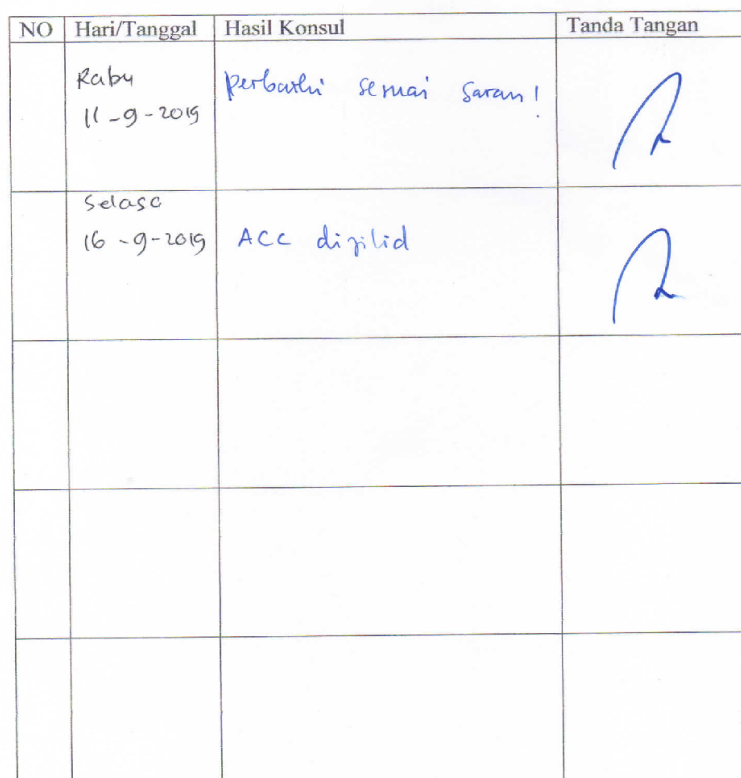 NO Hari/Tanggal Hasil Konsul Tanda Tangan
Rabu
11-9-2019
Perbaiki sesuai Saran!
Selasa
16-9-2019
ACC dijilid